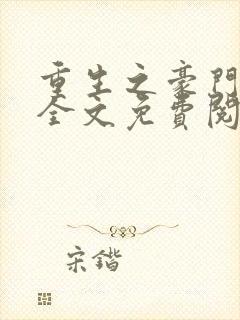 重生之豪門
全文免費閱
宋鍇